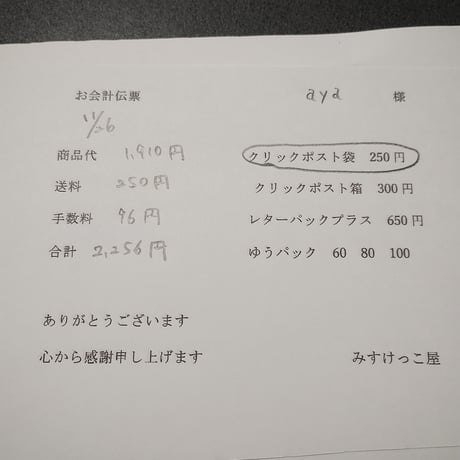 お会計伝票 aya 様
11/26
商品代 1,910円 クリックポスト袋 250円
送料 250円 クリックポスト箱 300円
手数料 96円 レターパックプラス 650円
合計 2,256円 ゆうパック 60 80 100
ありがとうございます
心から感謝申し上げます みすけっこ屋